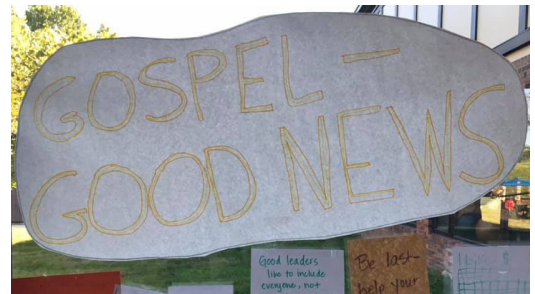 GOSPEL —
GOOD NEWS
Good leaders
like to include
everyone, not
Be last-
help your